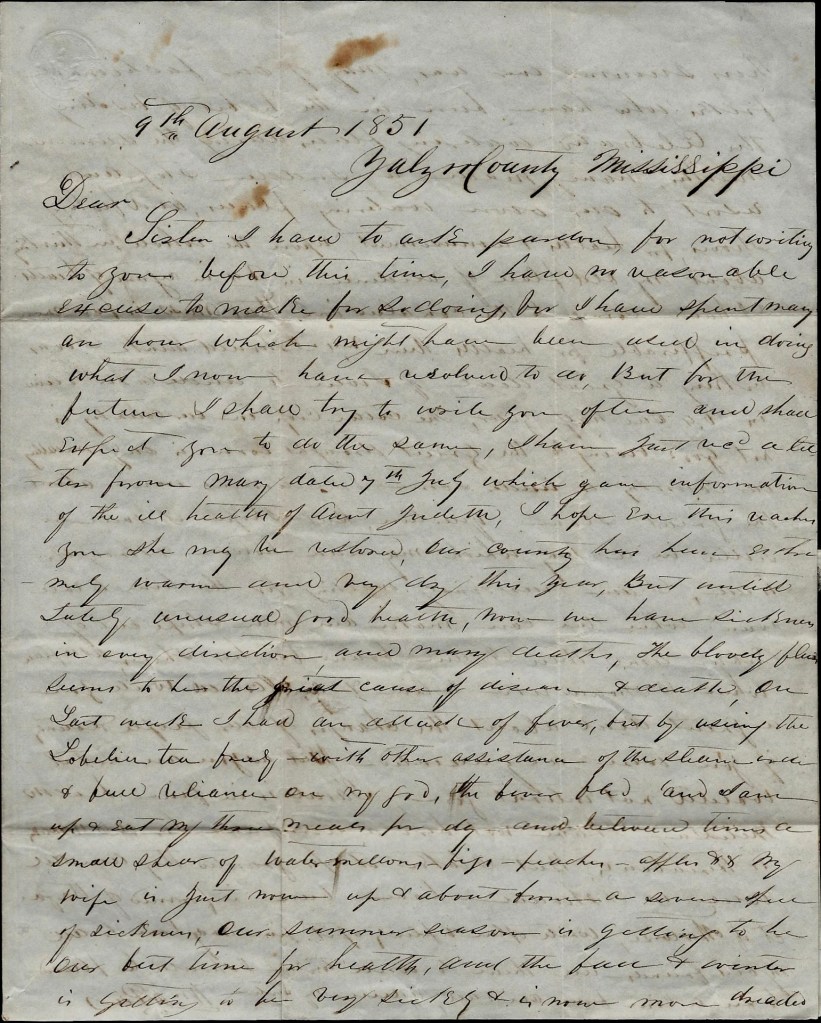 9th August 1851
Yalzoo County Mississippi
Dear
Sister I have to ask pardon, for not writing
to you before this time, I have no reasonable
excuse to make for so doing, for I have spent many
an hour which might have been used in doing
what I now have resolved to do, But for the
future I shall try to write you often and shall
expect you to do the same, I have Just recd a let-
ter from Mary date 7th July which gave information
of the ill health of Aunt Judeth, I hope Ere this reaches
you she may be restored, Our county has been extre
mely warm and very dry this year, But untill
Lately unusual good health, now we have sickness
in every direction, and many deaths, The bloody flux
seems to be the great cause of disease & death, On
Last week I had an attack of fever, but by using the
Lobelia tea freely - with other assistance of the steam
& full reliance on my god, the fever fled and I am
up & eat my three meals per day - and between times a
small shear of watermellons - figs - peaches - apples && My
wife is Just now up & about from a severe spell
of sickness, Our summer season is getting to be
our best time for health, and the fall & winter
is getting to be very sickly & is now more dreaded